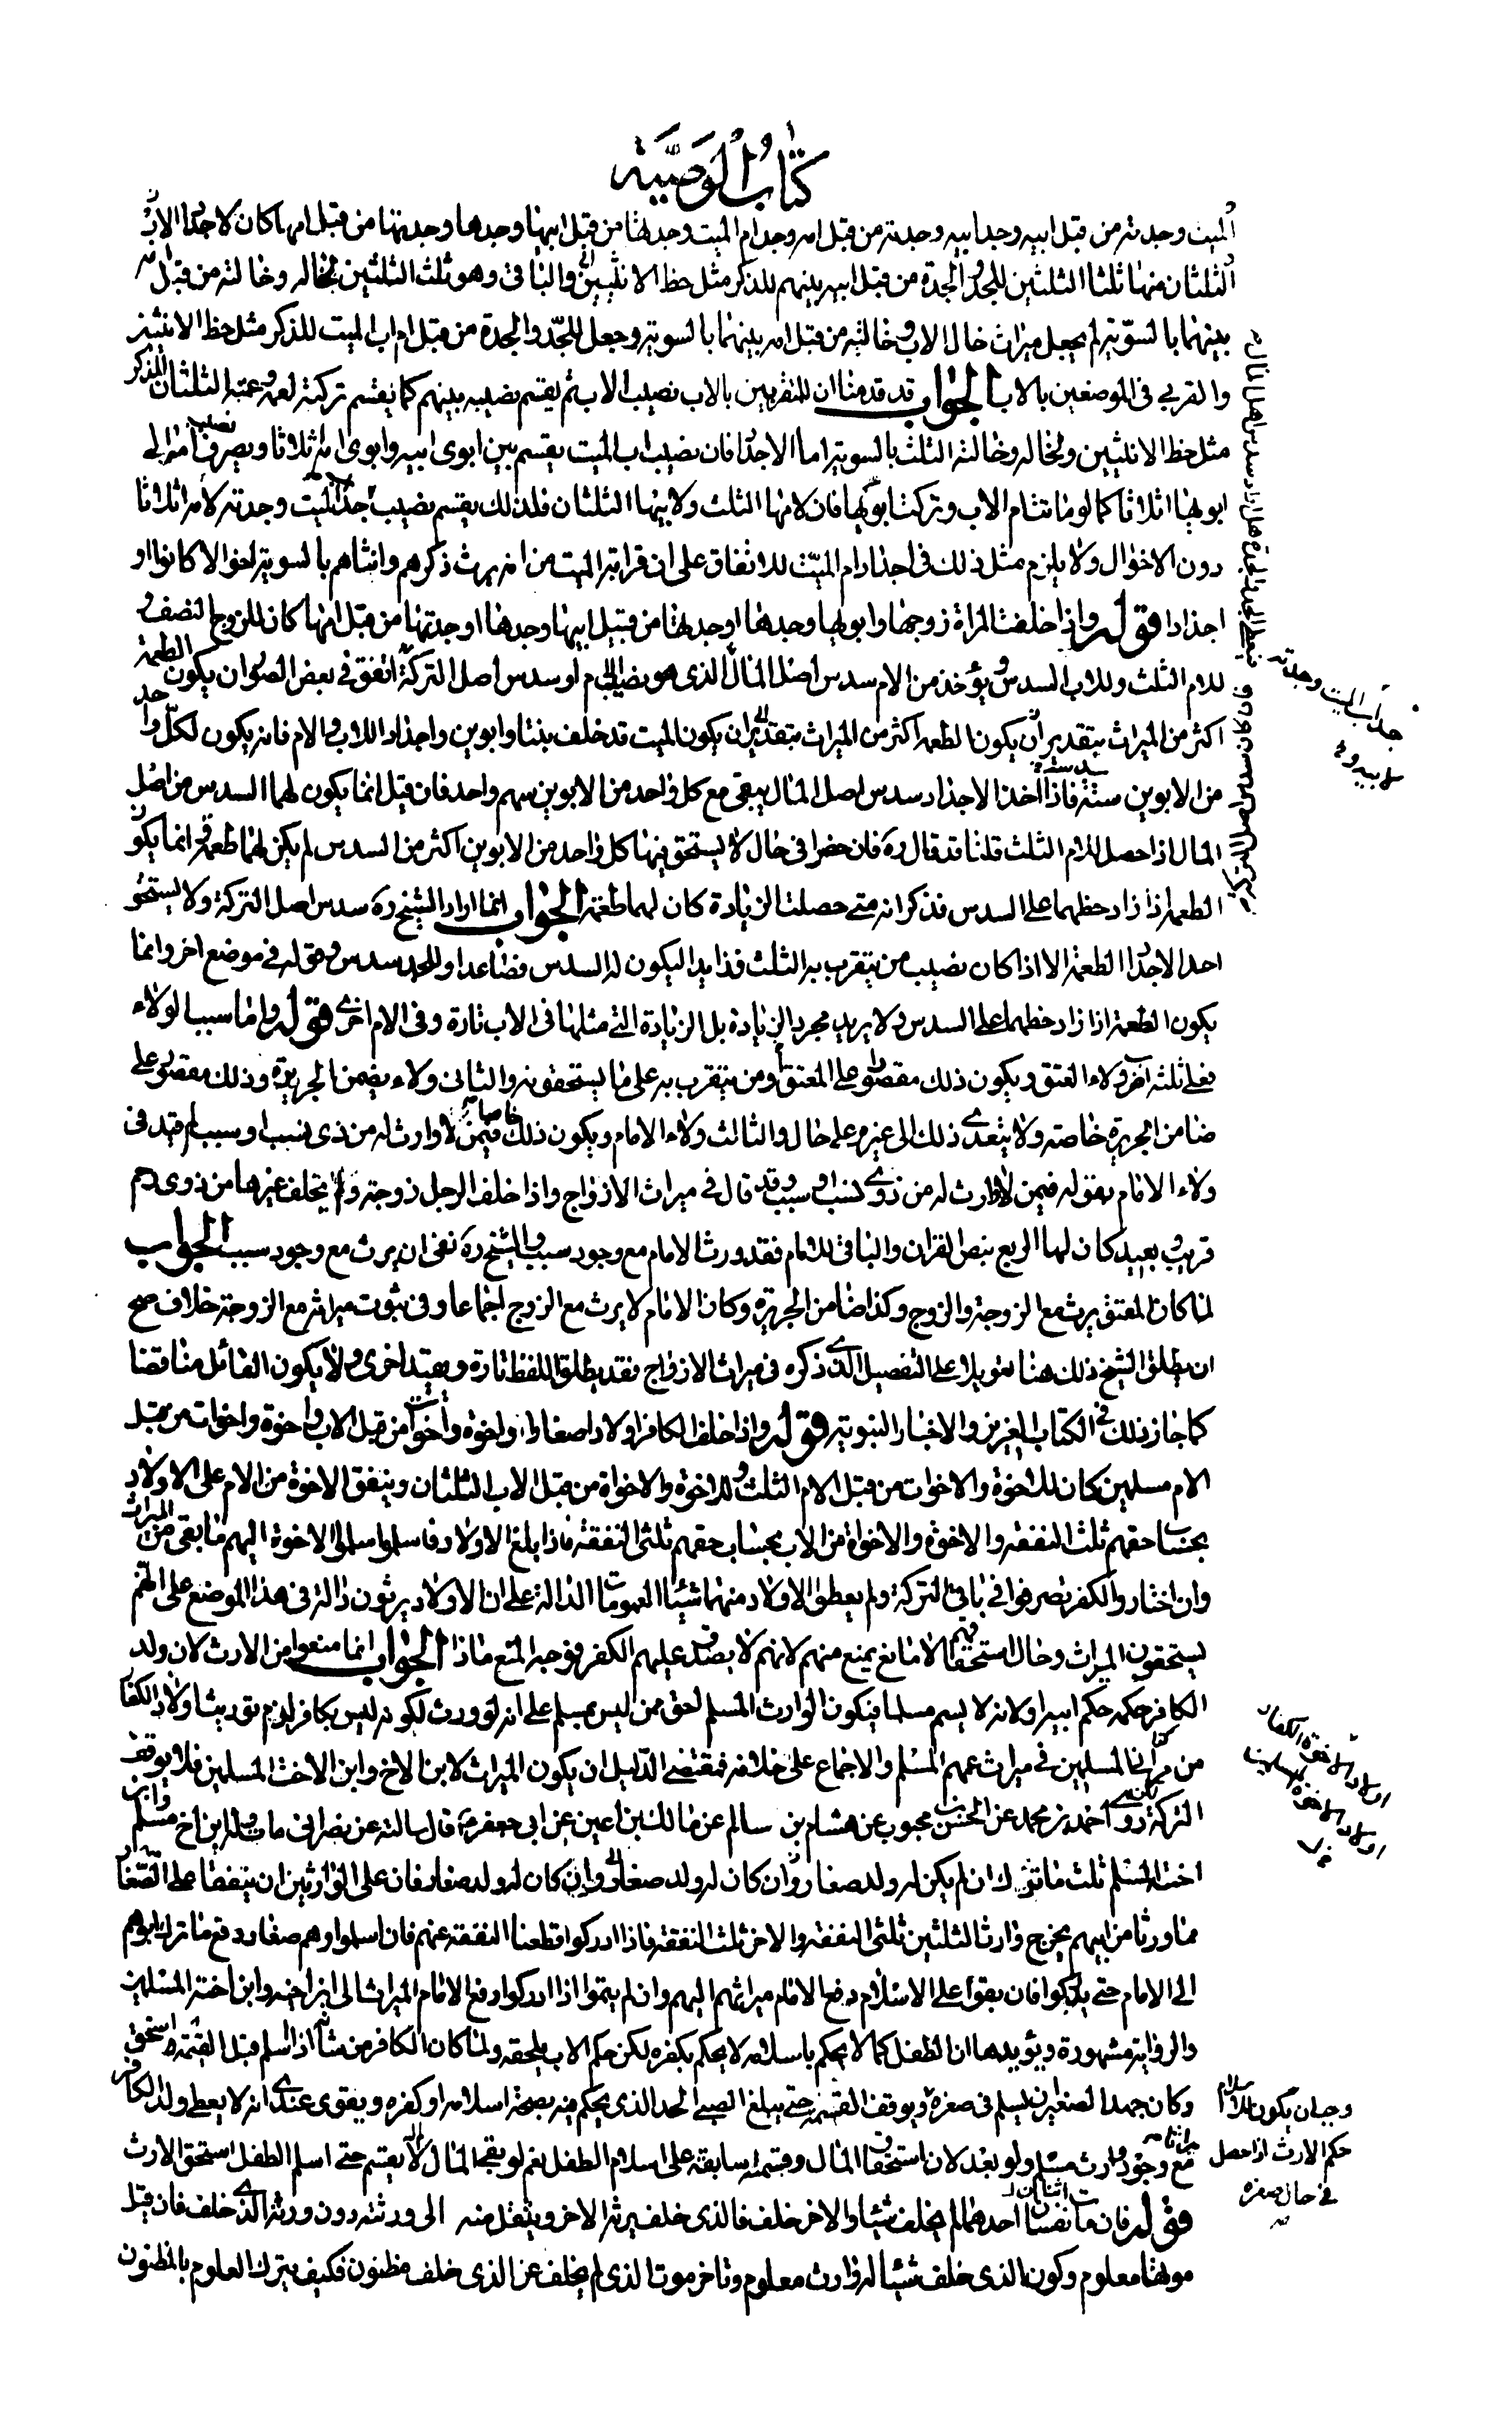 كتاب الوصية
الميت وجدته من قبل ابيه وجد ابيه وجدته من قبل امه وجد ام الميت وجدتها من قبل ابيها وجدها وجدتها من قبل امها كان لاجداد الاب
الثلثان منها ثلثا الثلثين للجد والجدة من قبل ابيه بينهم للذكر مثل حظ الانثيين والباقى وهو ثلث الثلثين لخاله وخالته من قبل امه
بينهما بالسوية لم يجعل ميراث خال الاب وخالته من قبل امه بينهما بالسوية وجعل للجد والجدة من قبل ام اب الميت للذكر مثل حظ الانثيين
والقربى فى الموضعين بالاب الجواب قد قدمنا ان للمتقربين بالاب نصيب الاب ثم يقسم نصيبه بينهم كما يقسم تركته لعمه وعمته الثلثان للذكر
مثل حظ الانثيين ولخاله وخالته الثلث بالسوية اما الاجداد فان نصيب اب الميت يقسم بين ابوى ابيه وابوى امه اثلاثا ويصرف نصيب امه الى
ابويها اثلاثا كما لو ماتت ام الاب وتركت ابويها فان لامها الثلث ولابيها الثلثان فلذلك يقسم نصيب جد اب الميت وجدته لامه اثلاثا
دون الاخوال ولا يلزم مثل ذلك فى اجداد ام الميت للاتفاق على ان قرابة الميت من امه يرث ذكرهم وانثاهم بالسوية اخوالا كانوا او
اجدادا قوله واذا خلفت المراة زوجها وابويها وجدها او جدتها من قبل ابيها وجدها او جدتها من قبل امها كان للزوج النصف و
للام الثلث وللاب السدس ويؤخذ من الام سدس اصل المال الذى هو نصيب الام او سدس اصل التركة اتفق فى بعض الصور ان يكون الطعمة
اكثر من الميراث بتقدير ان يكون الطعمة اكثر من الميراث بتقدير ان يكون الميت قد خلف بنتا وابوين واجداد اللاب والام فانه يكون لكل واحد
من الابوين ستة فاذا اخذ الاجداد سدس اصل المال يبقى مع كل واحد من الابوين سهم واحد فان قيل انما يكون لهما السدس من اصل
المال اذا حصل للام الثلث قلنا قد قال ره فان حضرا فى حال لا يستحق فيها كل واحد من الابوين اكثر من السدس لم يكن لهما طعمة انما يكون
الطعمة اذا زاد حظهما على السدس فذكر انه متى حصلت الزيادة كان لهما طعمة الجواب انما اراد الشيخ ره سدس اصل التركة ولا يستحق
احد الاجداد الطعمة الا اذا كان نصيب من يتقرب به الثلث فزايدا ليكون له السدس فصاعدا وللجد سدس وقوله فى موضع اخر وانما
يكون الطعمة اذا زاد حظهما على السدس ولا يريد مجرد الزيادة بل الزيادة التى مثلها فى الاب تارة وفى الام اخرى قوله واما سبب الولاء
فعلى ثلثة اضرب ولاء العتق ويكون ذلك مقصورا على المعتق ومن يتقرب به على ما يستحقونه والثانى ولاء يضمن الجريرة وذلك مقصور على
ضامن الجريرة خاصة ولا يتعدى ذلك الى غيره على حال والثالث ولاء الامام ويكون ذلك خاصا فيمن لا وارث له من ذى نسب او سبب لم قيد فى
ولاء الامام بقوله فيمن لا وارث له من ذوى نسب او سبب وقد قال فى ميراث الازواج واذا خلف الرجل زوجته ولم يخلف غيرها من ذوى رحم
قريب او بعيد كان لها الربع بنص القران والباقى للامام فقد ورث الامام مع وجود سبب والشيخ ره نفى ان يرث مع وجود سبب الجواب
لما كان المعتق يرث مع الزوجة والزوج وكذا ضامن الجريرة وكان الامام لا يرث مع الزوج اجماعا وفى ثبوت ميراثه مع الزوجة خلاف صح
ان يطلق الشيخ ذلك هنا تعويلا على التفصيل الذى ذكره فى ميراث الازواج فقد يطلق اللفظ تارة ويقيد اخرى ولا يكون القائل مناقضا
كما جاز ذلك فى الكتاب العزيز والاخبار النبوية قوله واذا خلف الكافر اولادا صغارا واخوة واخوات من قبل الاب واخوة واخوات من قبل
الام مسلمين كان للاخوة والاخوات من قبل الام الثلث وللاخوة والاخوات من قبل الاب الثلثان وينفق الاخوة من الام على الاولاد
بحساب حقهم ثلث النفقة والاخوة والاخوات من الاب بحساب حقهم ثلثى النفقة فاذا بلغ الاولاد فاسلموا سلم الاخوة اليهم ما بقى من الميراث
وان اختاروا الكفر تصرفوا فى باقى التركة ولم يعطوا الاولاد منها شيئا العمومات الدالة على ان الاولاد يرثون دالة فى هذا الموضع على انهم
يستحقون الميراث وحال استحقاقهم لا مانع يمنع منهم لانهم لا يصدق عليهم الكفر فوجه المنع ماذا الجواب انما منعوا من الارث لان ولد
الكافر حكمه حكم ابيه ولانه لا يسم مسلما فيكون الوارث المسلم احق ممن ليس بمسلم على انه لو ورث لكونه ليس بكافر لزم توريث اولاد الكفار
التركة روى احمد بن محمد عن الحسن بن محبوب عن هشام بن سالم عن مالك بن اعين عن ابى جعفر ع قال سالته عن نصرانى مات وله ابن اخ مسلم وابن
اخت مسلم
مما ورثا من ابيهم يخرج وارث الثلثين ثلثى النفقة والاخر ثلث النفقة فاذا ادركوا قطعا النفقة عنهم فان اسلموا وهم صغار دفع ما ترك ابوهم
الى الامام حتى يدركوا فان بقوا على الاسلام دفع الامام ميراثهم اليهم وان لم يتموا اذا ادركوا دفع الامام الميراث الى ابن اخيه وابن اخته المسلمين
والرواية مشهورة ويؤيدها ان الطفل كما لا يحكم باسلامه لا يحكم بكفره لكن حكم الاب يلحقه ولما كان الكافر من شانه اذا اسلم قبل القسمة استحق
وكان جهد الصغير ان يسلم فى صغره ويوقف القسمة حتى يبلغ الصبى الحد الذى يحكم فيه بصحة اسلامه او كفره ويقوى عندى انه لا يعطى ولد الكافر
مع وجود وارث مسلم ولو بعد لان استحقاق المال وقسمته سابقة على اسلام الطفل نعم لو بقى المال لا يقتسم حتى اسلم الطفل استحق الارث
قوله فان مات نفسان احدهما لم يخلف شيئا والاخر خلف فالذى خلف يرثه الاخر وينقل منه الى ورثته دون ورثة الذى خلف فان قيل
موتهما معلوم وكون الذى خلف شيئا له وارث معلوم وتاخر موت الذى لم يخلف عن الذى خلف مظنون فكيف يترك المعلوم بالمظنون
جد اب الميت وجدته
لابيه
اولاد الاخوة الكفار
اولاد الاخوة المسلمين
وجب ان يكون للاسلام
حكم الارث اذا حصل
فى حال صغره